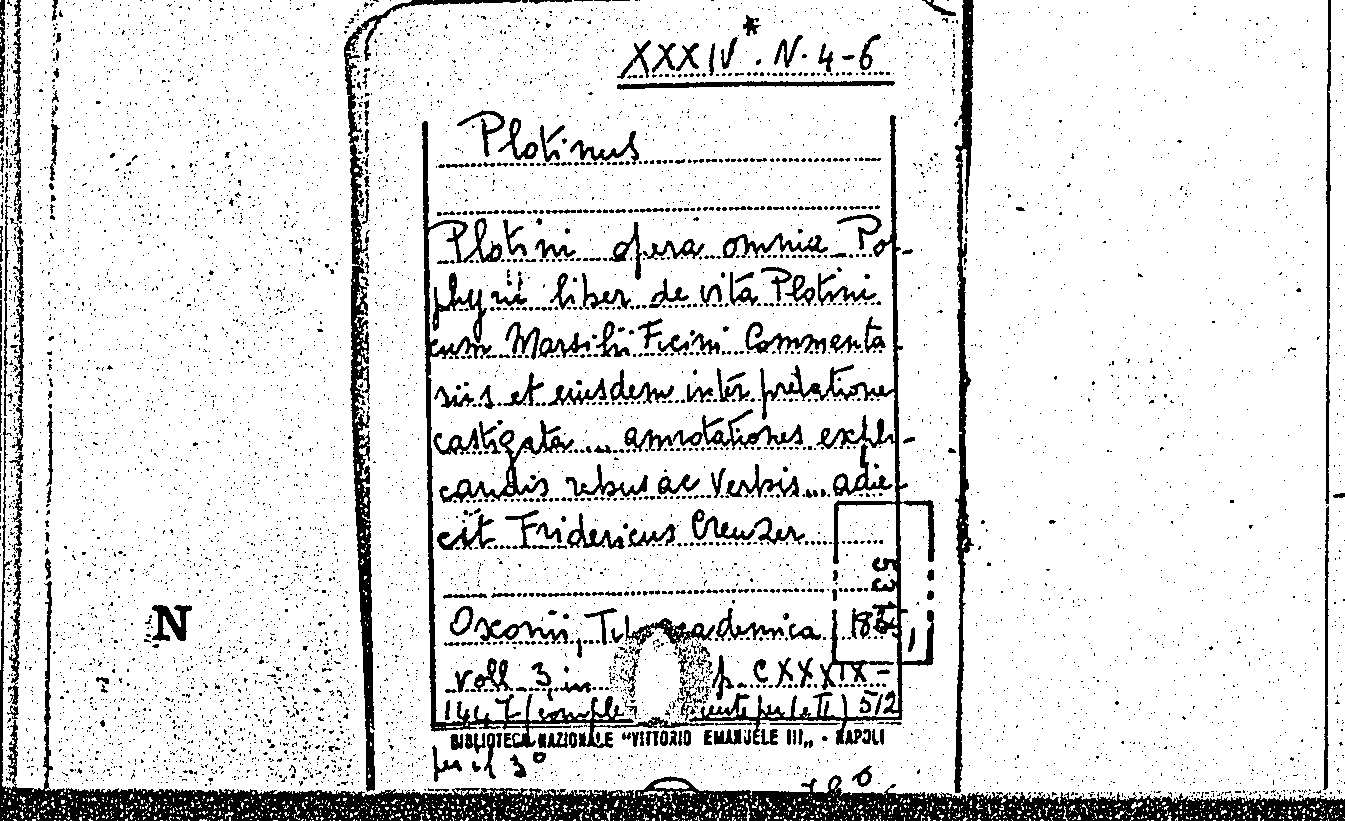 XXXIV * . N. 4-6
Plotinus
Plotini opera omnia Por-
phyrii liber de vita Plotini
cum Marsilii Ficini Commenta-
riis et eiusdem inter pretatione
castigata ... annotationes expli-
candis rebus ac verbis ... adie-
cit Fridericus Creuzer
53
Oxonii, academica
voll 3 in p. CXXXIX-
512
BIBLIOTECA NAZIONALE "VITTORIO EMANUELE III„ - NAPOLI
per il 3º
N